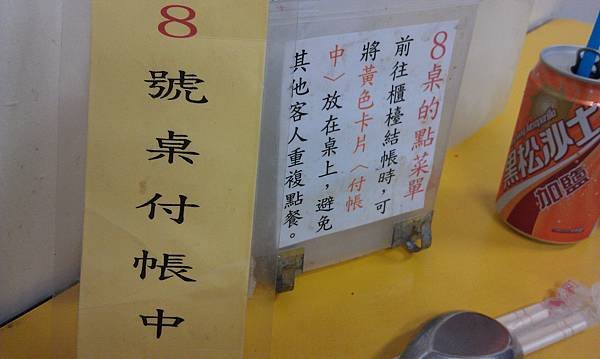 8
號桌付帳中
8桌的點菜單
前往櫃檯結帳時,可
將黃色卡片〈付帳
中〉放在桌上,避免
其他客人重複點餐。
黑松沙士
加鹽